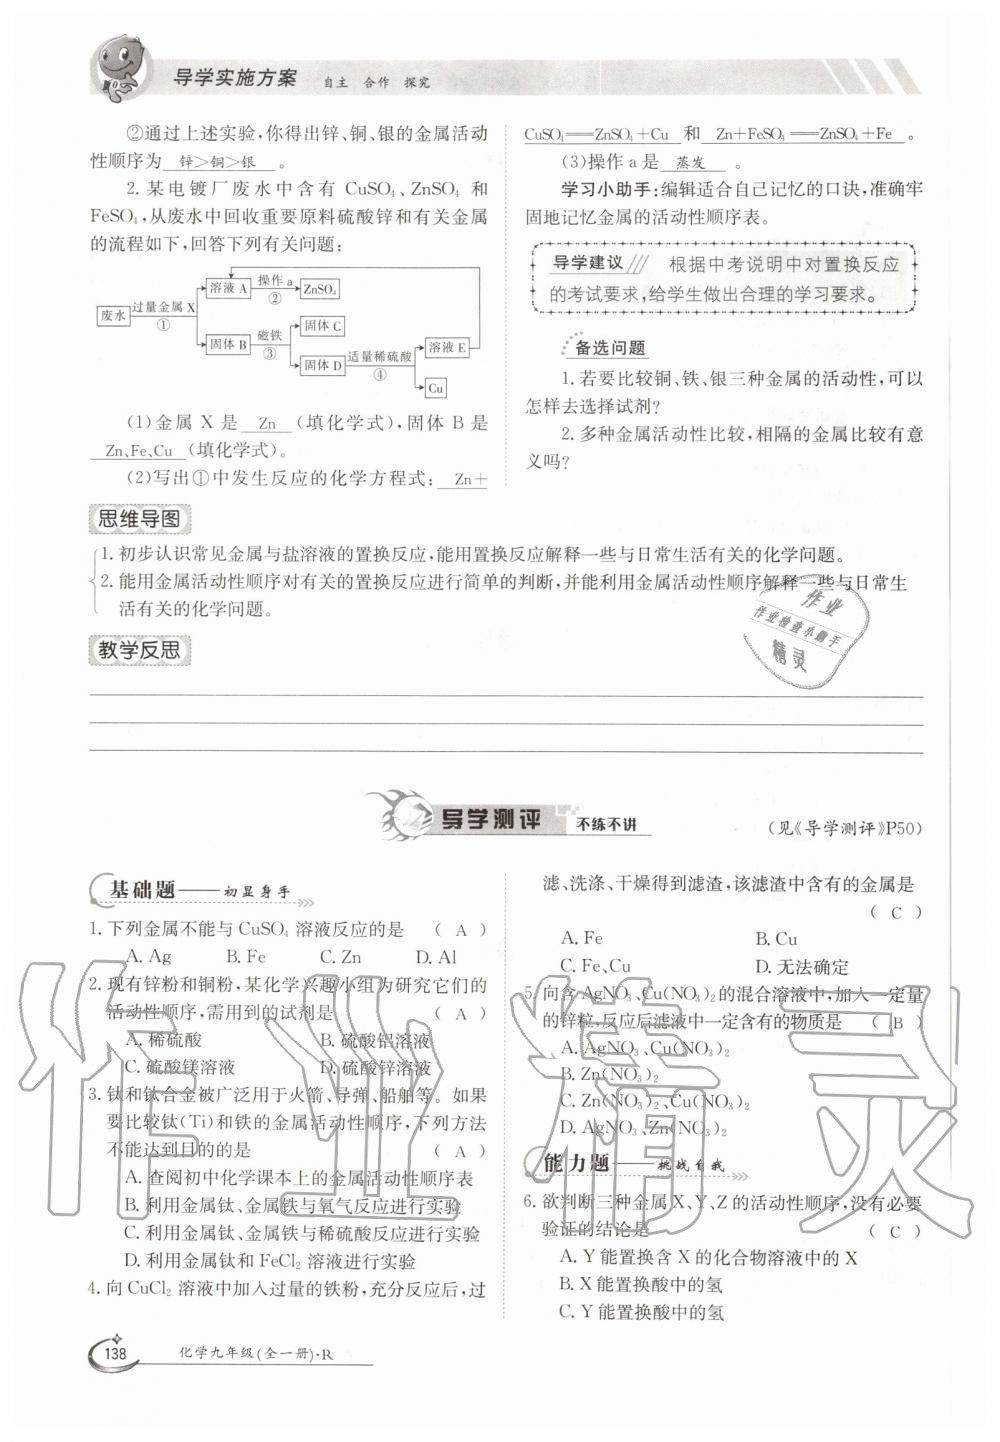 导学实施方案 自主 合作 探究
②通过上述实验,你得出锌、铜、银的金属活动
性顺序为 锌>铜>银 。
2. 某电镀厂废水中含有 CuSO₄、ZnSO₄ 和
FeSO₄,从废水中回收重要原料硫酸锌和有关金属
的流程如下,回答下列有关问题:
废水 过量金属 X ①
溶液 A 操作 a ② ZnSO₄
固体 B 磁铁 ③
固体 C
固体 D 适量稀硫酸 ④
溶液 E
Cu
(1)金属 X 是 Zn (填化学式),固体 B 是
Zn、Fe、Cu (填化学式)。
(2)写出①中发生反应的化学方程式: Zn+
CuSO₄══ZnSO₄+Cu 和 Zn+FeSO₄══ZnSO₄+Fe 。
(3)操作 a 是 蒸发 。
学习小助手:编辑适合自己记忆的口诀,准确牢
固地记忆金属的活动性顺序表。
导学建议 根据中考说明中对置换反应
的考试要求,给学生做出合理的学习要求。
备选问题
1. 若要比较铜、铁、银三种金属的活动性,可以
怎样去选择试剂?
2. 多种金属活动性比较,相隔的金属比较有意
义吗?
思维导图
1. 初步认识常见金属与盐溶液的置换反应,能用置换反应解释一些与日常生活有关的化学问题。
2. 能用金属活动性顺序对有关的置换反应进行简单的判断,并能利用金属活动性顺序解释一些与日常生
活有关的化学问题。
作业
作业检查小助手
精灵
教学反思
导学测评 不练不讲
(见《导学测评》P50)
基础题——初显身手
1. 下列金属不能与 CuSO₄ 溶液反应的是 ( A )
A. Ag B. Fe C. Zn D. Al
2. 现有锌粉和铜粉,某化学兴趣小组为研究它们的
活动性顺序,需用到的试剂是 ( A )
A. 稀硫酸 B. 硫酸铝溶液
C. 硫酸镁溶液 D. 硫酸锌溶液
3. 钛和钛合金被广泛用于火箭、导弹、船舶等。如果
要比较钛(Ti)和铁的金属活动性顺序,下列方法
不能达到目的的是 ( A )
A. 查阅初中化学课本上的金属活动性顺序表
B. 利用金属钛、金属铁与氧气反应进行实验
C. 利用金属钛、金属铁与稀硫酸反应进行实验
D. 利用金属钛和 FeCl₂ 溶液进行实验
4. 向 CuCl₂ 溶液中加入过量的铁粉,充分反应后,过
滤、洗涤、干燥得到滤渣,该滤渣中含有的金属是
( C )
A. Fe B. Cu
C. Fe、Cu D. 无法确定
5. 向含 AgNO₃、Cu(NO₃)₂的混合溶液中,加入一定量
的锌粒,反应后滤液中一定含有的物质是 ( B )
A. AgNO₃、Cu(NO₃)₂
B. Zn(NO₃)₂
C. Zn(NO₃)₂、Cu(NO₃)₂
D. AgNO₃、Zn(NO₃)₂
能力题——挑战自我
6. 欲判断三种金属 X、Y、Z 的活动性顺序,没有必要
验证的结论是 ( C )
A. Y 能置换含 X 的化合物溶液中的 X
B. X 能置换酸中的氢
C. Y 能置换酸中的氢
作业精灵
138 化学九年级(全一册)·R